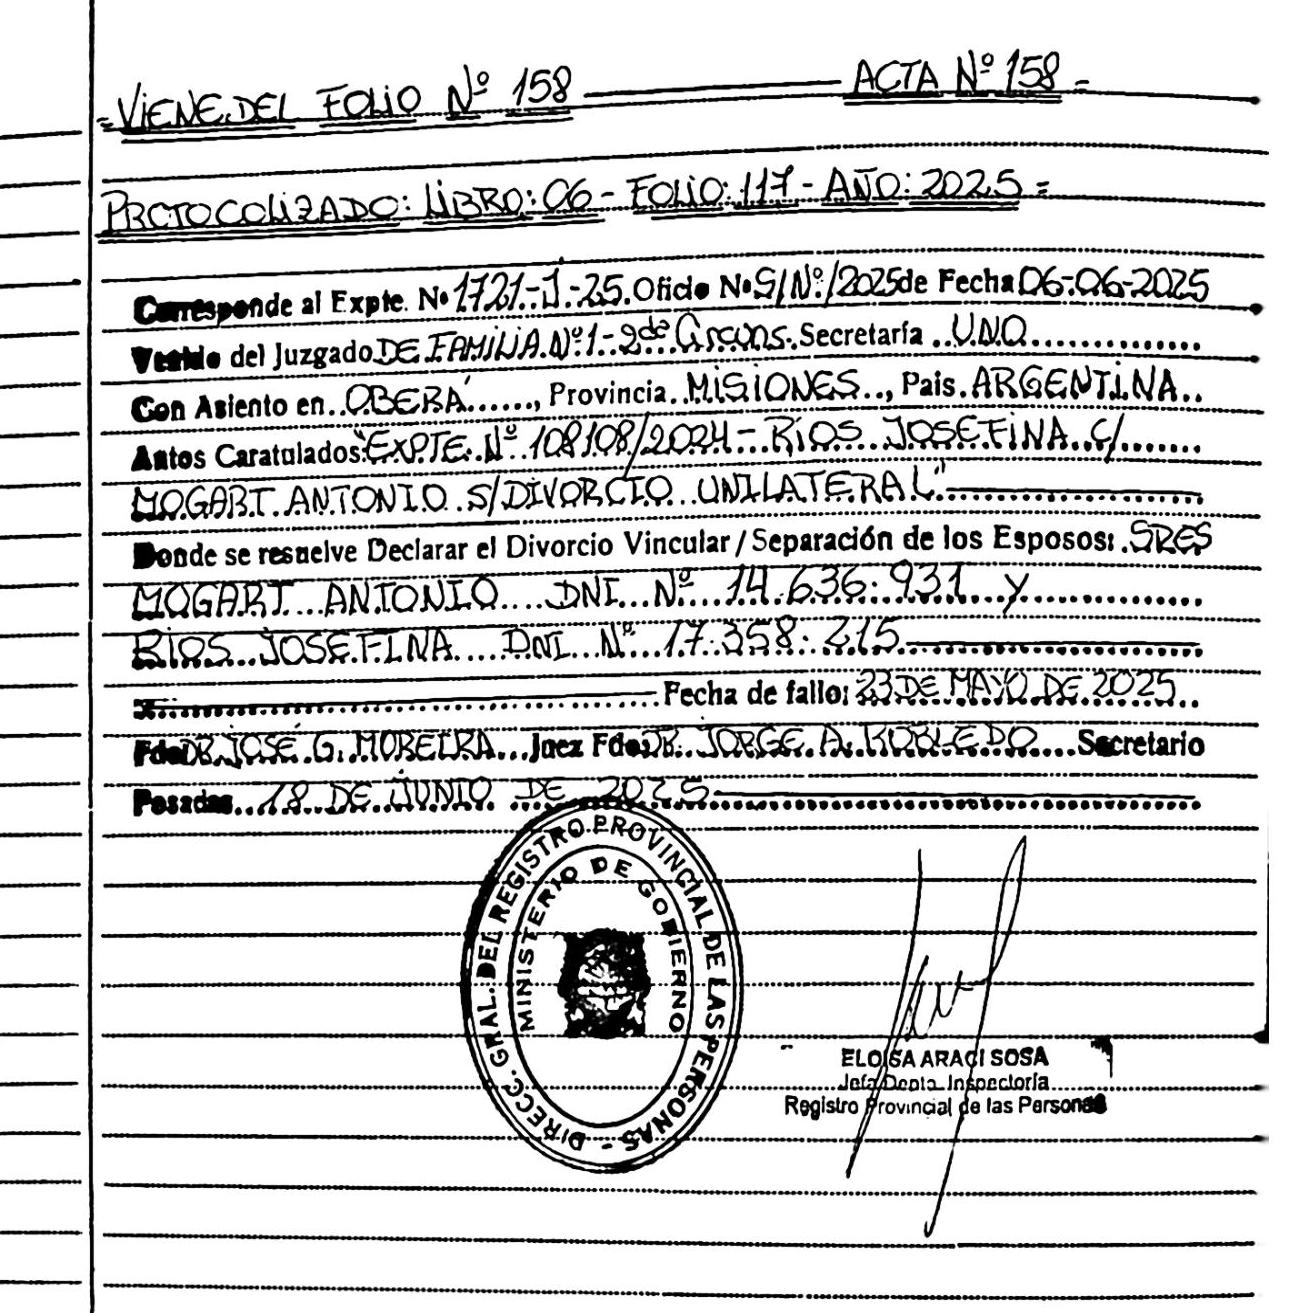 =VIENE.DEL FOLIO Nº 158 ACTA Nº 158=
PROTOCOLIZADO: LIBRO: 06 - FOLIO: 117 - AÑO: 2025=
Corresponde al Expte. Nº 1721-J-25. Oficio Nº S/Nº/2025 de Fecha 06-06-2025
Venido del Juzgado DE FAMILIA Nº1-2da Circuns. Secretaría UNO
Con Asiento en OBERÁ, Provincia MISIONES, País ARGENTINA
Autos Caratulados: "EXPTE. Nº 108108/2024 - RIOS JOSEFINA C/
MOGART ANTONIO S/DIVORCIO UNILATERAL"
Donde se resuelve Declarar el Divorcio Vincular / Separación de los Esposos: SRES
MOGART ANTONIO DNI Nº 14.636.931 y
RIOS JOSEFINA DNI Nº 17.358.215
Fecha de fallo: 23 DE MAYO DE 2025
Fdo: DR. JOSÉ G. MOREIRA Juez Fdo: DR. JORGE A. ROBLEDO Secretario
Posadas 18 DE JUNIO DE 2025
DIRECC. GRAL. DEL REGISTRO PROVINCIAL DE LAS PERSONAS -
MINISTERIO DE GOBIERNO
ELOISA ARACI SOSA
Jefa Depto. Inspectoría
Registro Provincial de las Personas